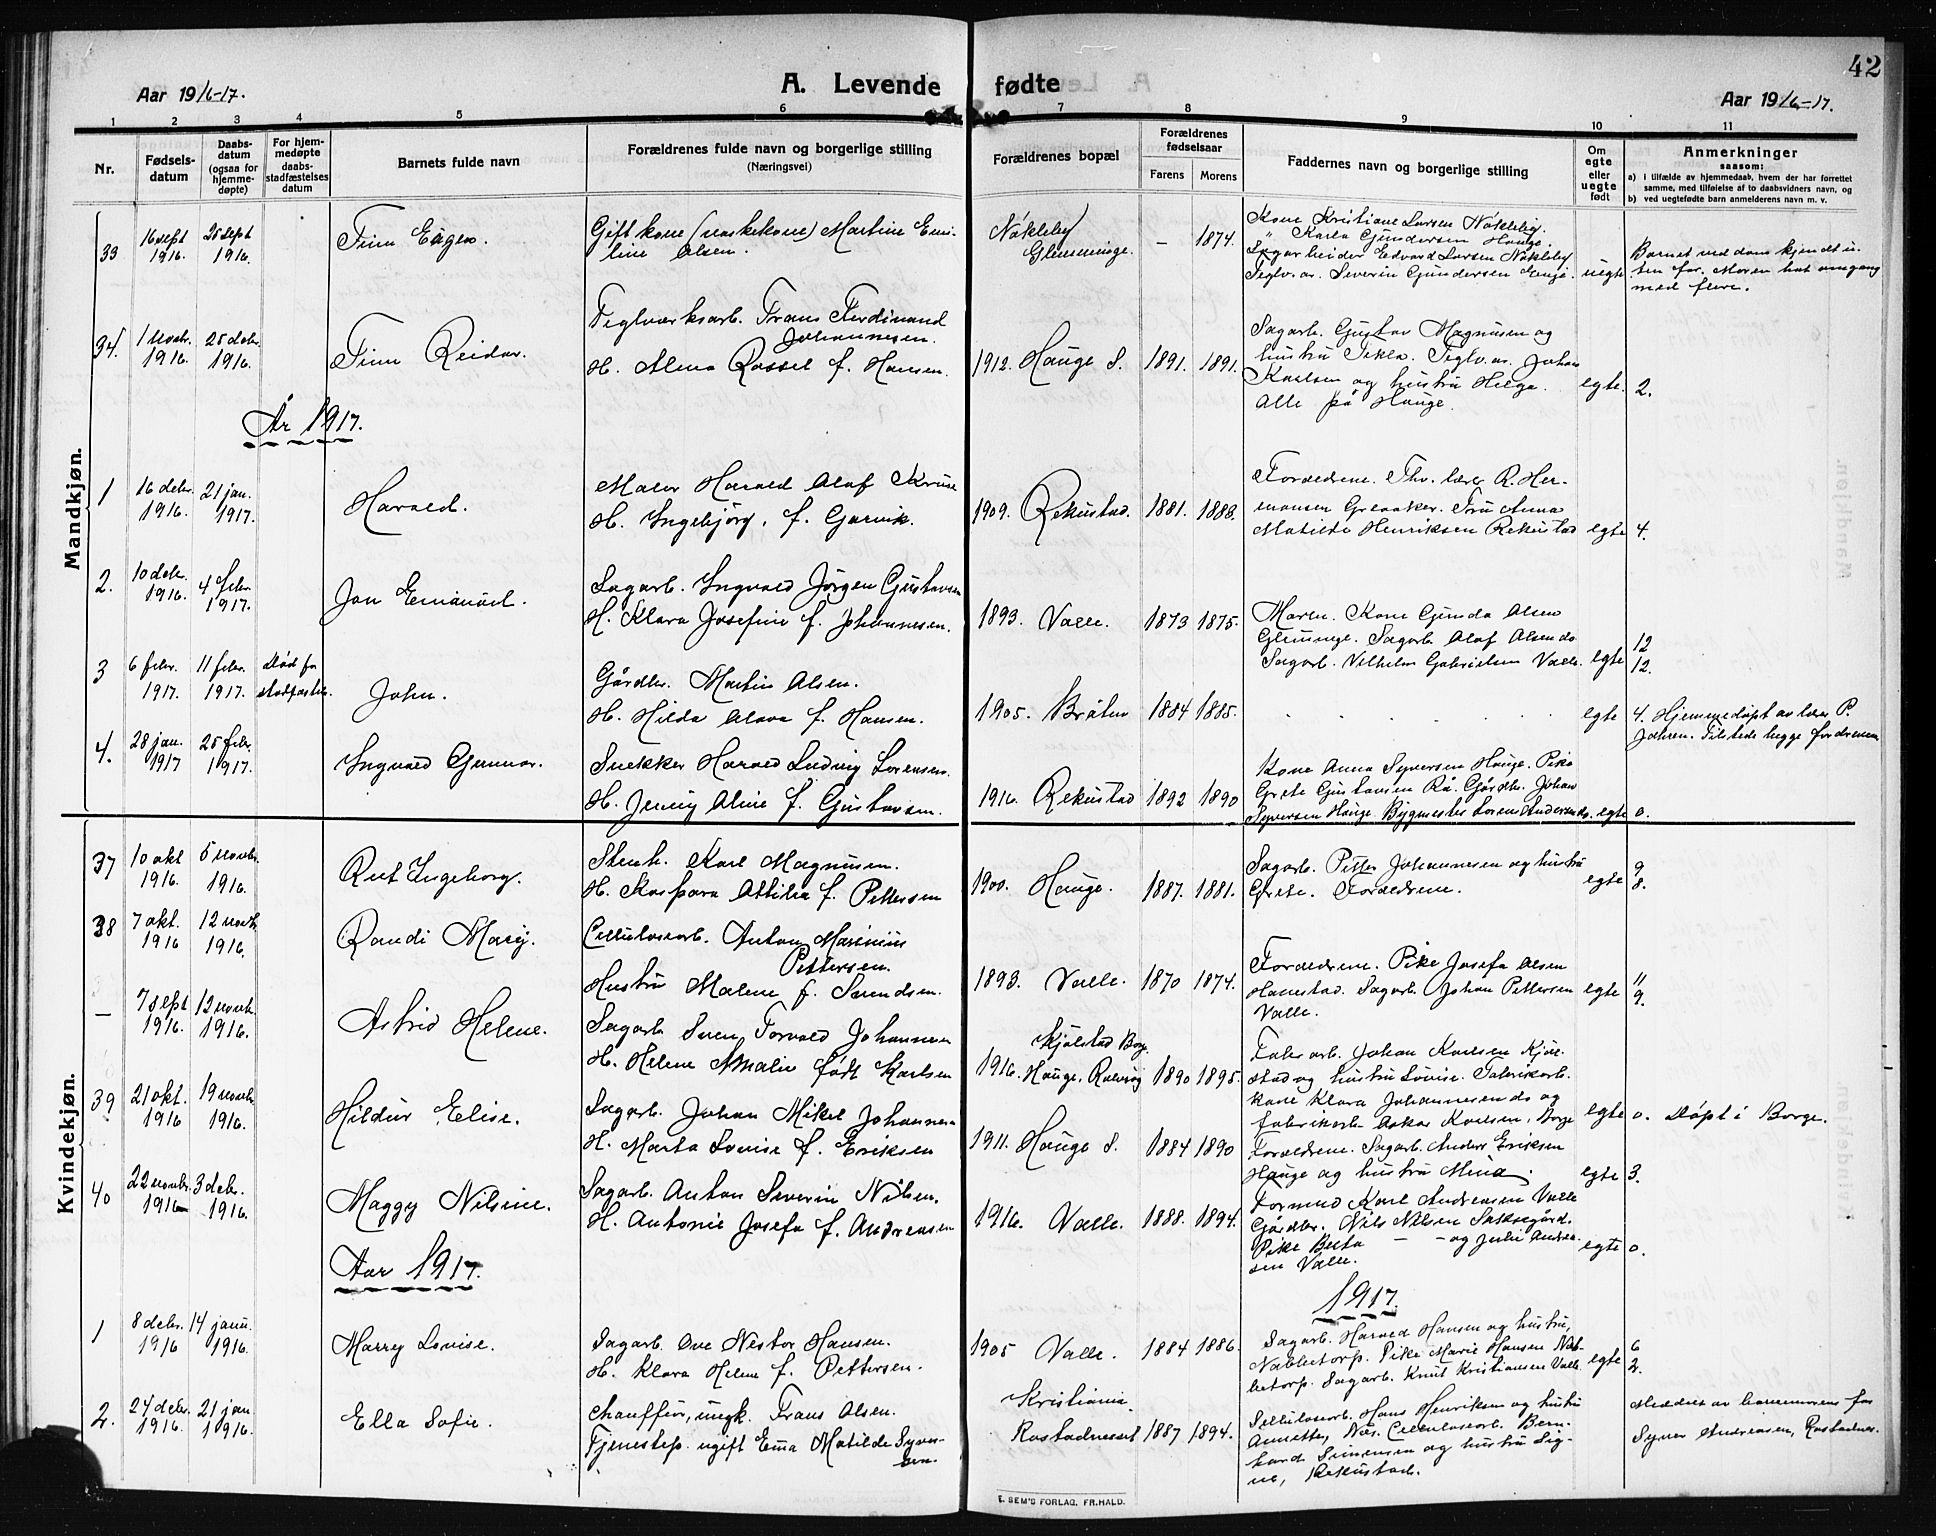 42
A. Levende fødte
Aar 1916-17.
Aar 1916-17.
1 2 3 4 5 6 7 8 9 10 11
Nr.
Fødsels-
datum
Daabs-
datum
(ogsaa for
hjemme-
døpte)
For hjem-
medøpte
daabs-
stadfæstelses
datum
Barnets fulde navn
Forældrenes fulde navn og borgerlige stilling
(Næringsvei)
Forældrenes bopæl
Forældrenes
fødselsaar
Farens Morens
Faddernes navn og borgerlige stilling
Om
egte
eller
uegte
født
Anmerkninger
saasom:
a) i tilfælde av hjemmedaab, hvem der har forrettet
samme, med tilføielse af to daabsvidners navn, og
b) ved uegtefødte barn anmelderens navn m. v.
Mandkjøn.
33 16 sept 1916. 25 sept 1916. Finn Eugen.
Gift kone (vaskekone) Martine Emi-
line Olsen.
Nökleby
Glemminge. – 1874.
Kone Kristiane Larsen Nökleby.
" Karla Gundersen Hauge.
Sagarbeider Edvard Larsen Nökleby
Teglv.ar. Severin Gundersen Hauge. uegte
Barnet ved dom kjendt u-
ten far. Moren hat omgang
med flere.
34. 1 novbr. 1916. 25 debr. 1916. Finn Reidar.
Teglværksarb. Frans Ferdinand
Johannesen.
H. Alma Rassel f. Hansen.
1912. Hauge S. 1891. 1891.
Sagarb. Gustav Magnusen og
hustru Tekla. Teglv.ar. Johan
Karlsen og hustru Helga.
Alle på Hauge. egte. 2.
År 1917.
1 16 debr. 1916. 21 jan. 1917. Harald.
Maler Harald Olaf Kruse
H. Ingebjörg. f. Garvik.
1909. Rekustad. 1881. 1888.
Forældrene. Thv. lærer R. Her-
mansen Greaaker. Fru Anna
Matilde Henriksen Rekustad egte 4.
2. 10 debr. 1916. 4 febr. 1917. Jan Emanuel.
Sagarb. Ingvald Jörgen Gustavsen
H. Klara Josefine f. Johannesen.
1893. Valle. 1873 1875.
Moren. Kone Gunda Olsen
Glemminge. Sagarb. Olaf Olsen do
Sagarb. Vilhelm Gabrielsen Valle. egte 12
12.
3 6 febr. 1917. 11 febr. 1917. Död før
stadfæstels. John.
Gårdbr. Martin Olsen.
H. Hilda Olava f. Hansen.
1905. Bråten 1884 1885. egte
4. Hjemmedöpt av lærer P.
Jahren. Tilstede begge forældrene
4. 28 jan. 1917 25 febr. 1917. Ingvald Gunnar.
Snekker Harald Ludvig Lorensen.
H. Jenny Oline f. Gustavsen.
1916. Rekustad 1892 1890
Kone Anna Syversen Hauge. Pike
Grete Gustavsen Rå. Gårdbr. Johan
Syversen Hauge. Bygmester Lorens Andersen do. egte 0.
Kvindekjøn.
37 10 okt 1916. 5 novbr. 1916. Rut Ingeborg.
Stenh. Karl Magnusen.
H. Kaspara Ottilia f. Pettersen
1900. Hauge. 1887. 1881.
Sagarb. Petter Johannesen og hustru
Grete. Forældrene. egte 9
8.
38 7 okt. 1916 12 novbr. 1916. Randi Mary.
Cellulosearb. Anton Marinius
Pettersen.
Hustru Malene f. Svendsen.
1893. Valle. 1870 1874.
Forældrene. Pike Josefa Olsen
Hannestad. Sagarb. Johan Pettersen
Valle. egte 11
9.
– 7 sept 1916. 12 novbr. 1916. Astrid Helene.
Sagarb Sven Torvald Johannesen
H. Helene Amalie født Karlsen
1916. Kjölstad Borge.
Hauge, Rolvsöy 1890 1895.
Fabr.arb. Johan Karlsen Kjöl-
stad og hustru Lovise. Fabrikarb.
kone Klara Johannesen do og
fabrikarb. Oskar Karlsen, Borge egte 0. Döpt i Borge.
39 21 okt. 1916 19 novbr. 1916. Hildur Elise.
Sagarb. Johan Mikal Johannesen
H. Marta Lovise f. Eriksen
1911. Hauge S. 1884 1890
Forældrene. Sagarb. Anders Eriksen
Hauge og hustru Mina. egte 3.
40 22 novbr. 1916 3 debr. 1916. Maggy Nilsine.
Sagarb. Anton Severin Nilsen.
H. Antonie Josefa f. Andreasen
1916. Valle. 1888. 1894.
Formand Karl Andreasen Valle
Gårdbr. Nils Nilsen Saksegård.
Pike Berta – – og Julie Andrea-
sen Valle. egte 0.
Aar 1917.
1917.
1 8 debr. 1916 14 janu. 1916. Marry Lovise.
Sagarb. Ove Nestor Hansen.
H. Klara Helene f. Pettersen.
1905 Valle. 1884 1886.
Sagarb. Harald Hansen og hustru,
Nabbetorp. Pike Marie Hansen Nab-
betorp. Sagarb. Knut Kristiansen Valle. egte 6
2.
2. 24 debr. 1916. 21 jan 1916. Ella Sofie.
Chauffør, ungk. Frans Olsen.
Tjenestep. ugift Emma Matilde Syver-
sen.
Kristiania.
Rostadneset 1887 1894.
Cellulosearb. Hans Henriksen og hustru
Annette, Næs. Cellulosearb. Bern-
hard Simensen og hustru Sig-
ne, Rekustad.
Meddelt av barnemorens far
Syver Andreasen, Rostadnes.
E. SEM'S FORLAG, FR.HALD.